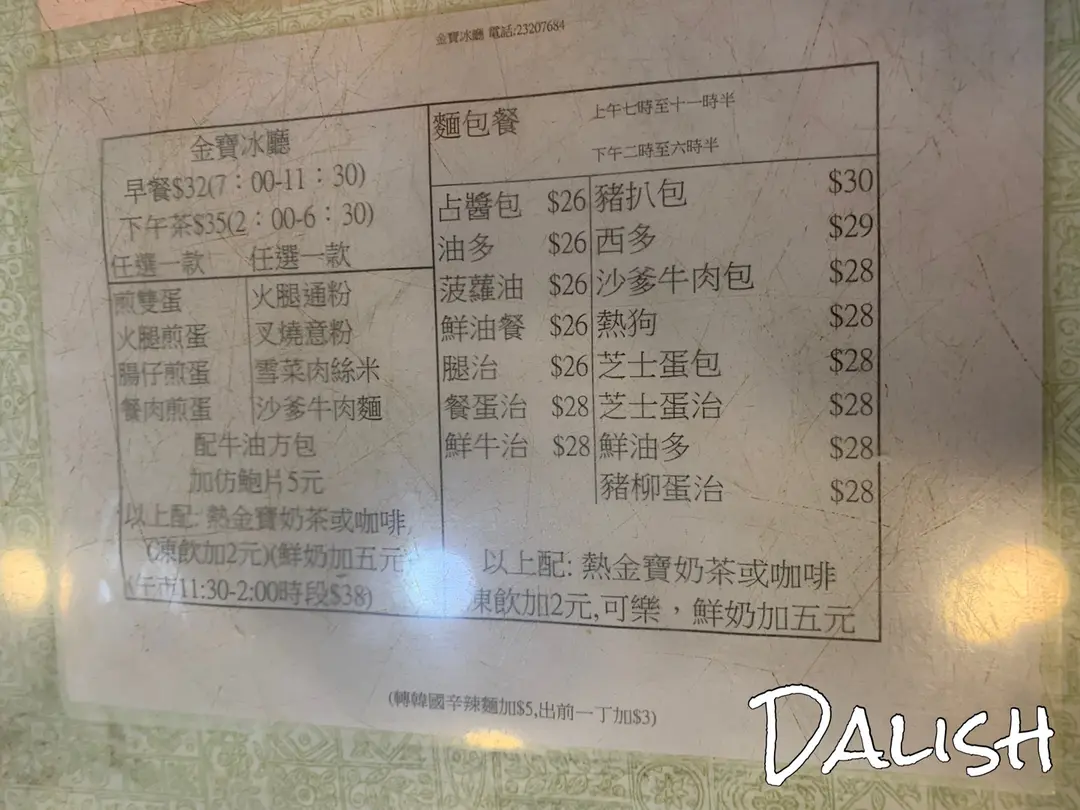 金寶冰廳 電話:23207684
金寶冰廳
早餐$32(7：00-11：30)
下午茶$35(2：00-6：30)
任選一款 任選一款
煎雙蛋 火腿通粉
火腿煎蛋 叉燒意粉
腸仔煎蛋 雪菜肉絲米
餐肉煎蛋 沙爹牛肉麵
配牛油方包
加仿鮑片5元
以上配: 熱金寶奶茶或咖啡
(凍飲加2元)(鮮奶加五元
(午市11:30-2:00時段$38)
麵包餐 上午七時至十一時半
下午二時至六時半
占醬包 $26 豬扒包 $30
油多 $26 西多 $29
菠蘿油 $26 沙爹牛肉包 $28
鮮油餐 $26 熱狗 $28
腿治 $26 芝士蛋包 $28
餐蛋治 $28 芝士蛋治 $28
鮮牛治 $28 鮮油多 $28
豬柳蛋治 $28
以上配: 熱金寶奶茶或咖啡
凍飲加2元,可樂，鮮奶加五元
(轉韓國辛辣麵加$5,出前一丁加$3)
DALISH